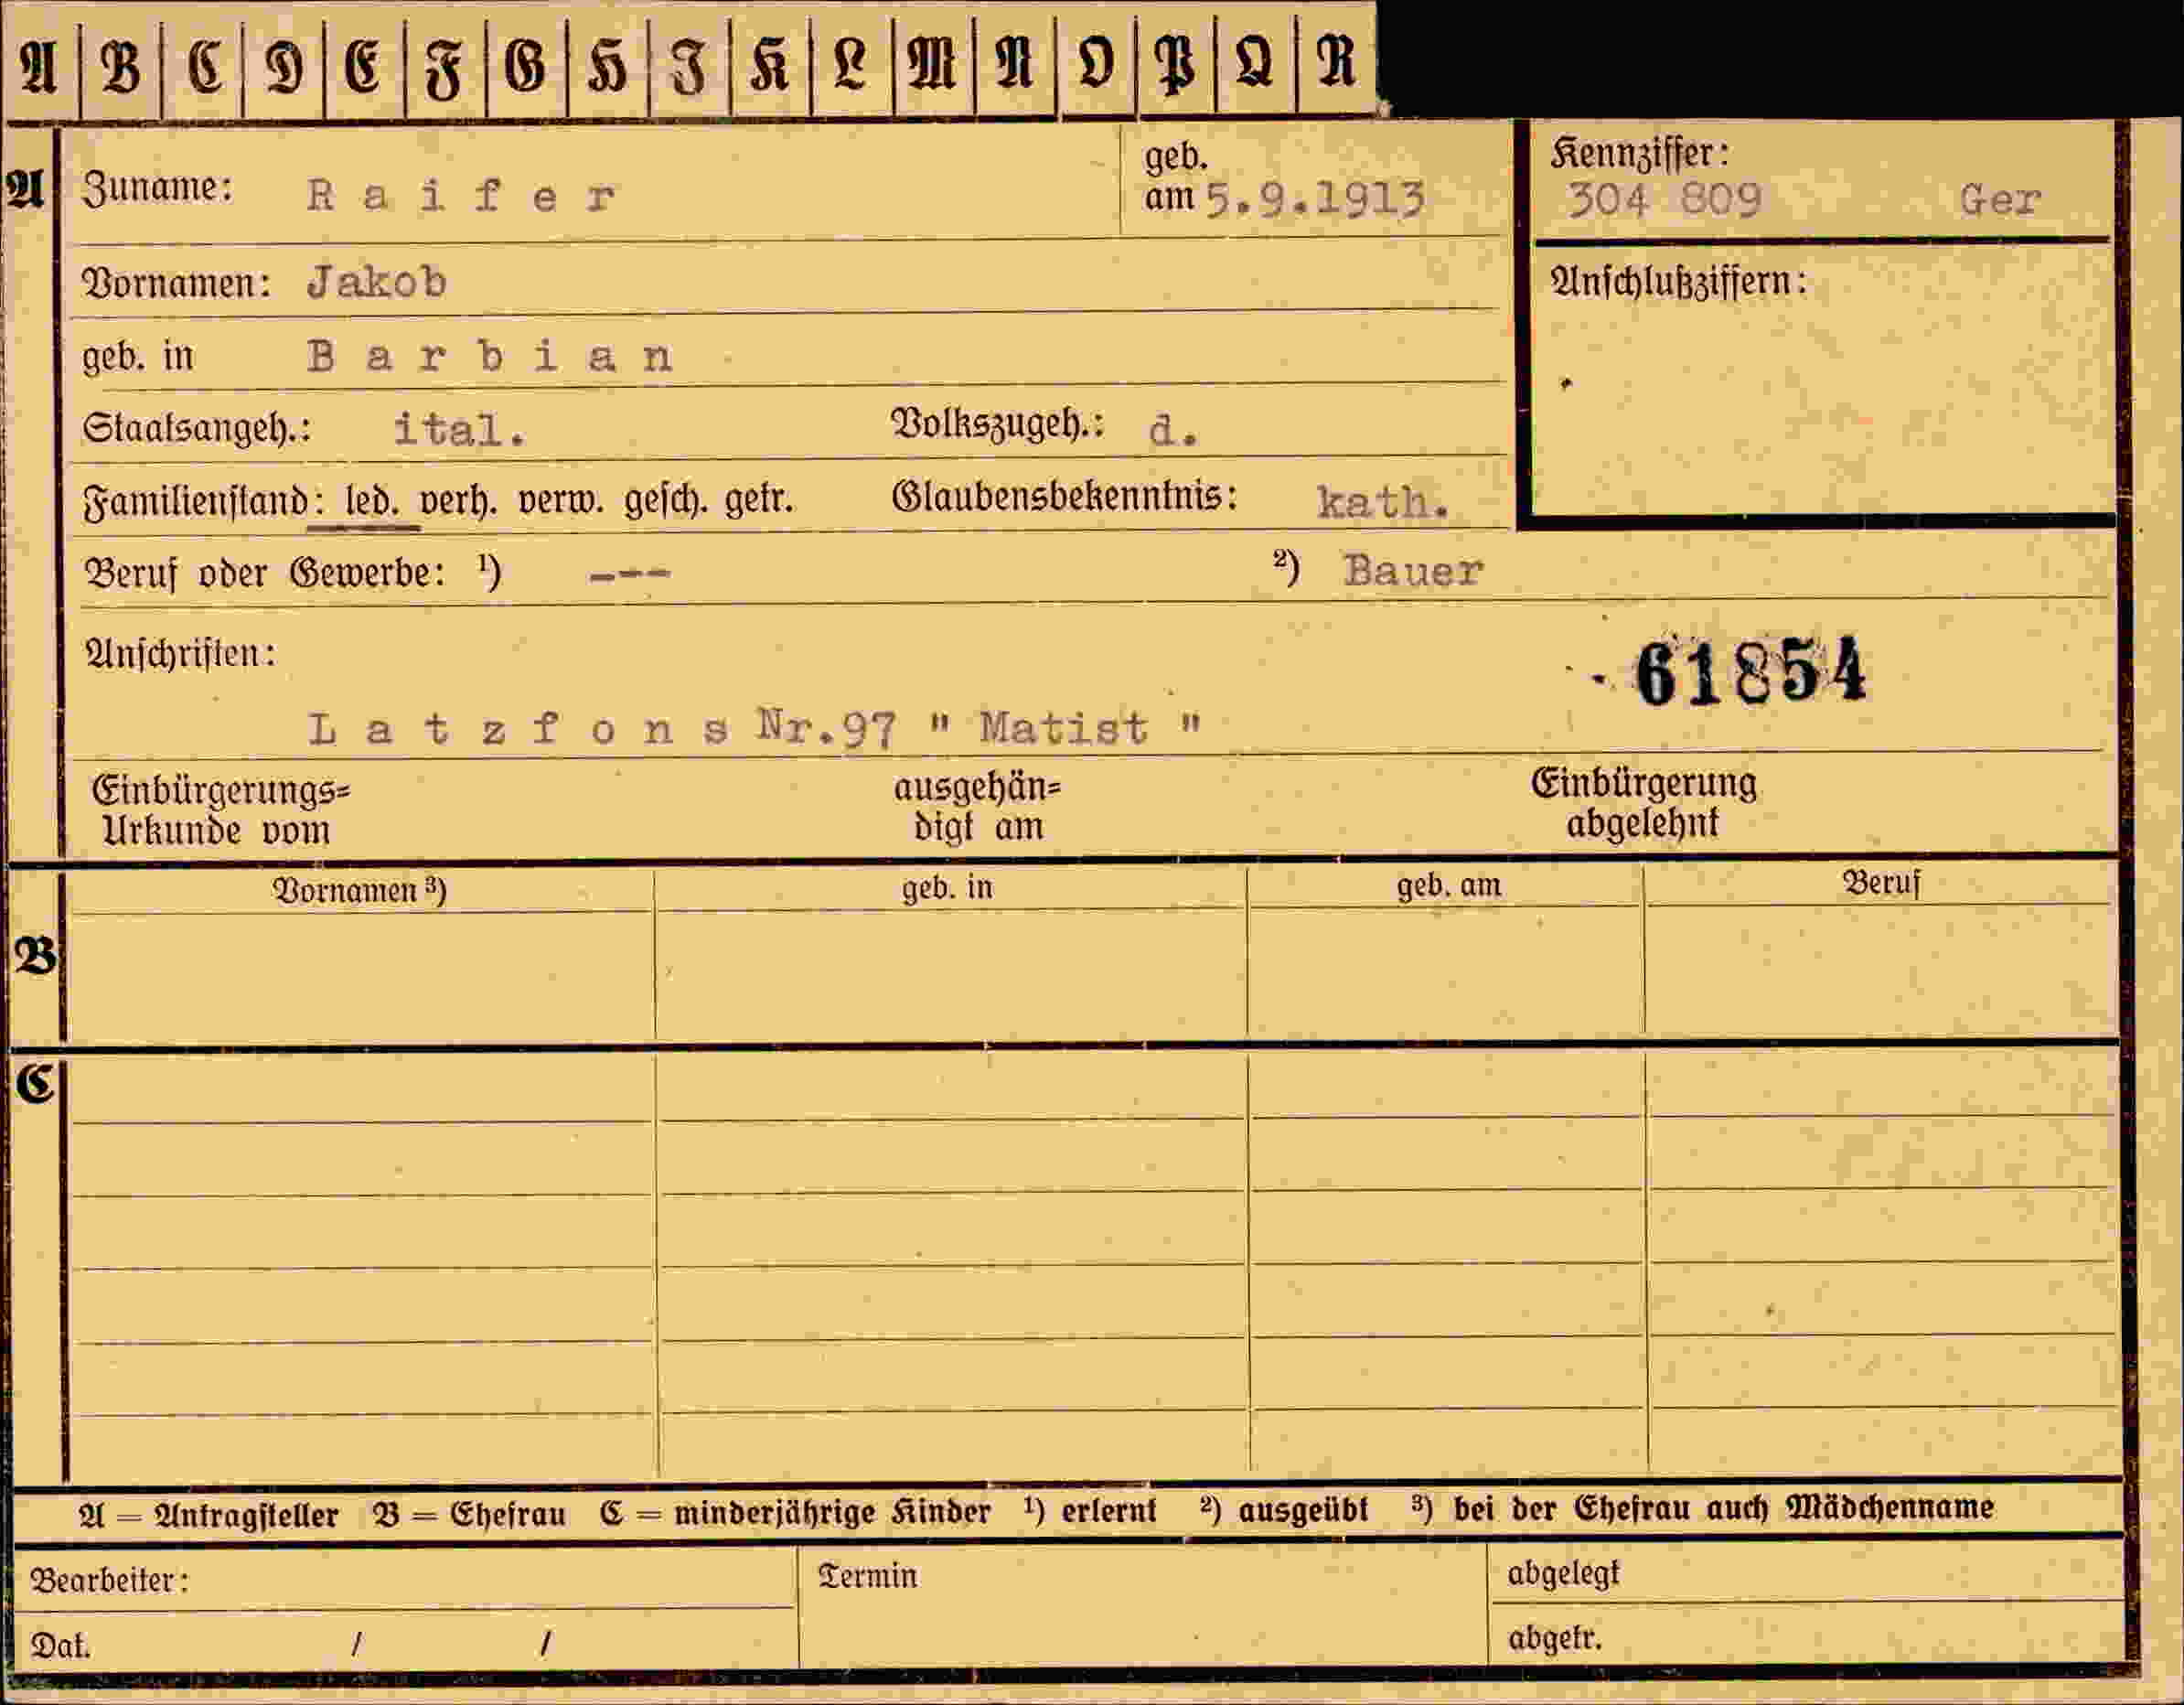 A B C D E F G H I K L M N O P Q R
A Zuname: Raifer geb. am 5.9.1913
Kennziffer: 304 809 Ger
Vornamen: Jakob
Anschlußziffern:
geb. in Barbian
Staatsangeh.: ital. Volkszugeh.: d.
Familienstand: led. verh. verw. gesch. getr. Glaubensbekenntnis: kath.
Beruf oder Gewerbe: ¹) --- ²) Bauer
Anschriften:
61854
Latzfons Nr.97 " Matist "
Einbürgerungs= ausgehän= Einbürgerung
Urkunde vom digt am abgelehnt
Vornamen ³) geb. in geb. am Beruf
B
C
A = Antragsteller B = Ehefrau C = minderjährige Kinder ¹) erlernt ²) ausgeübt ³) bei der Ehefrau auch Mädchenname
Bearbeiter: Termin abgelegt
Dat. / / abgetr.